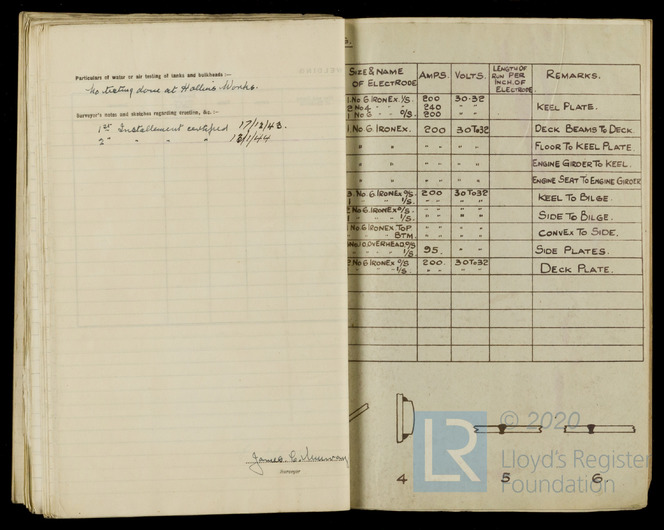 Particulars of water or air testing of tanks and bulkheads :—
No testing done at Hollins Works.
Surveyor's notes and sketches regarding erection, &c. :—
1st Installement certified 17/12/43.
2" " " " 13/1/44
James E.
Surveyor
SIZE & NAME OF ELECTRODE AMPS. VOLTS. LENGTH OF RUN PER INCH OF ELECTRODE REMARKS.
1 No 6 IRONEX. I/S. 200 30-32
2 No 4 " " 240 " " KEEL PLATE.
1 No 6 " O/S. 200
1 No 6 IRONEX. 200 30TO32 DECK BEAMS TO DECK
" " " " " " FLOOR TO KEEL PLATE.
" " " " " " ENGINE GIRDER TO KEEL.
" " " " " " ENGINE SEAT TO ENGINE GIRDER
3 No 6 IRONEX O/S. 200 30TO32
1 " " I/S. " " " " KEEL TO BILGE.
2 No 6 IRONEX O/S. " " " "
1 " " I/S. " " " " SIDE TO BILGE.
No 6 IRONEX TOP " " " "
" " BTM. " " " " CONVEX TO SIDE.
OVERHEAD O/S
" " I/S 95. " " SIDE PLATES.
2 No 6 IRONEX O/S 200. 30TO32
" " I/S. " " " " DECK PLATE.
4 5 6.
LR
© 2020
Lloyd's Register
Foundation